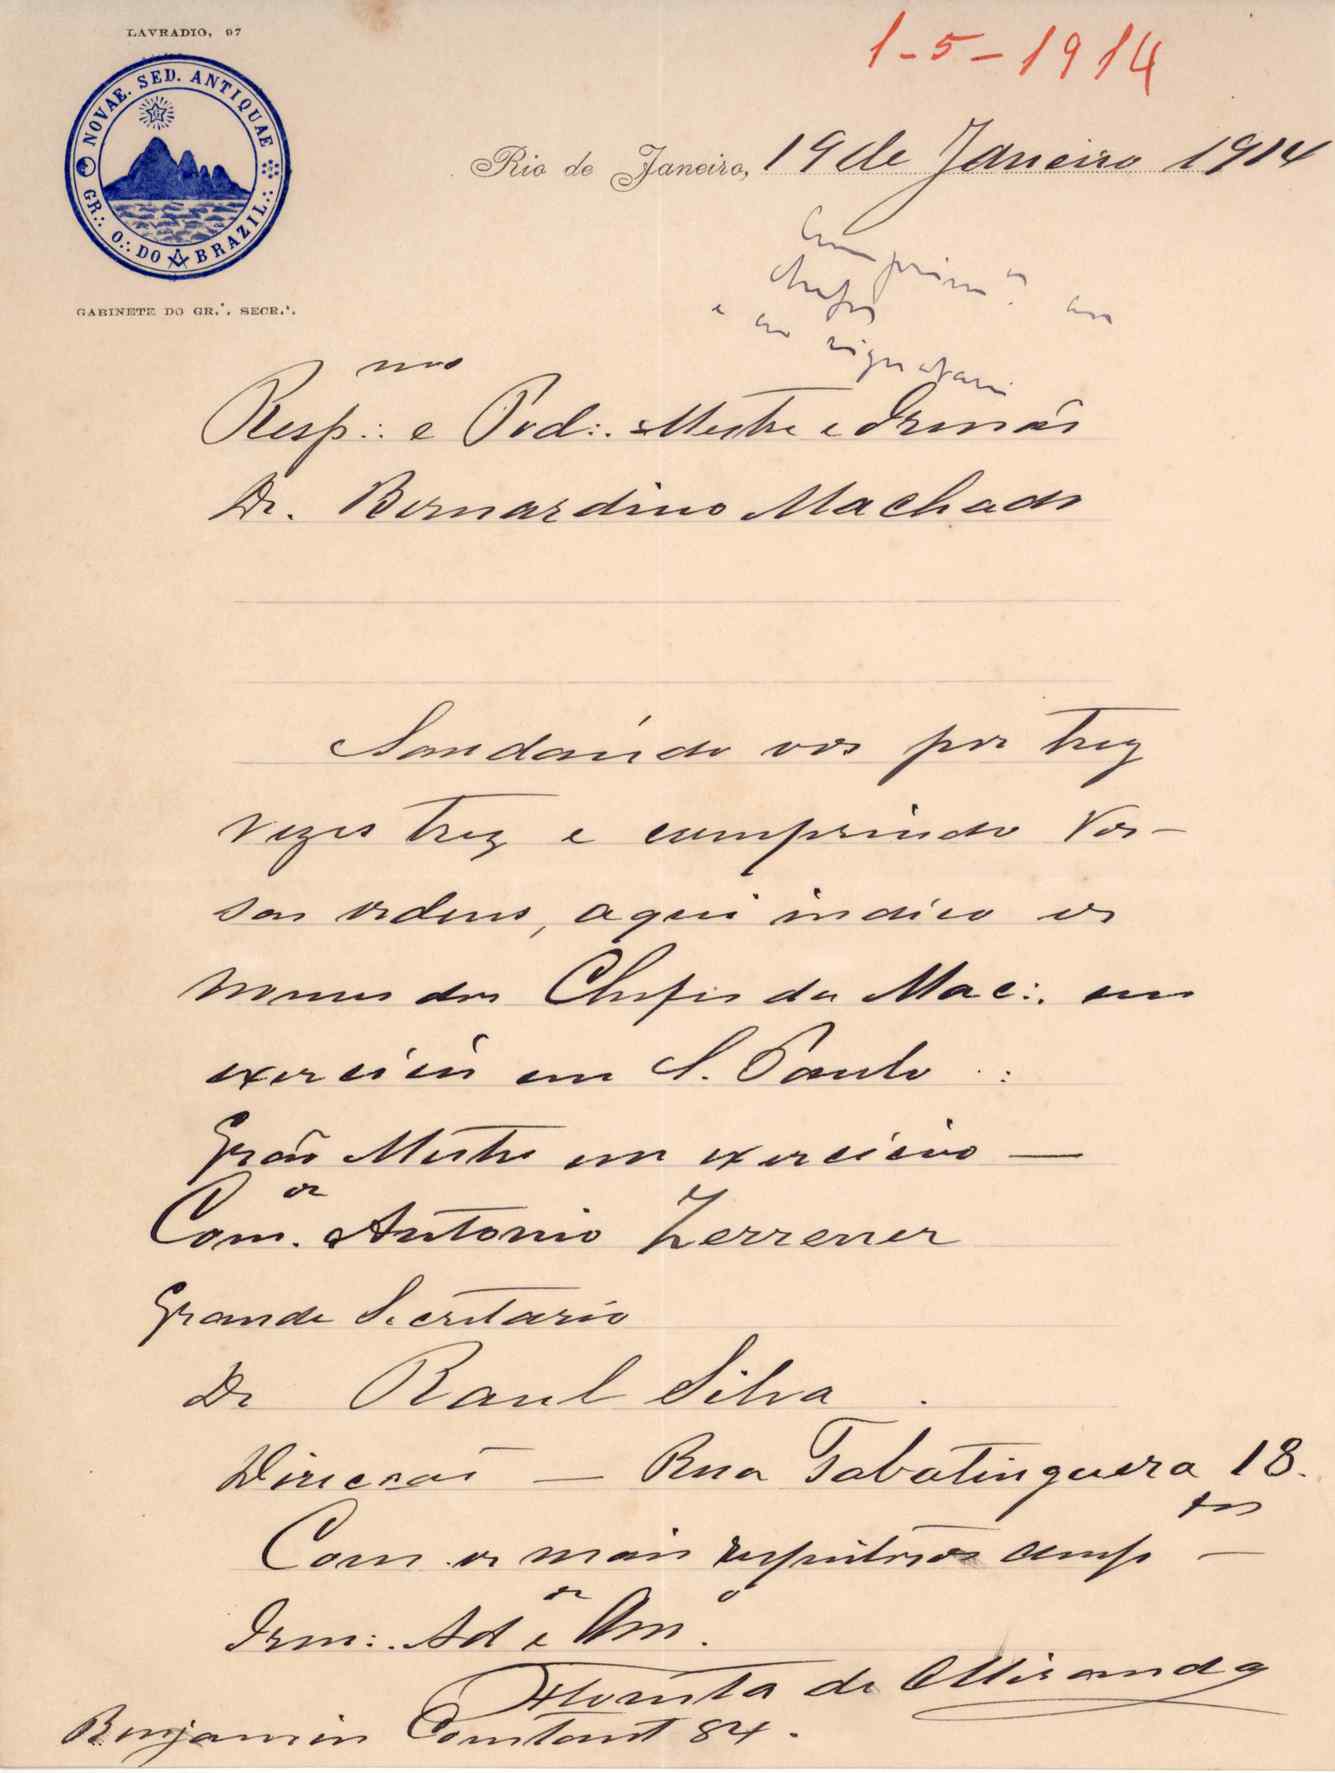 LAVRADIO, 97
NOVAE. SED. ANTIQUAE
GR∴ O∴ DO BRAZIL∴
GABINETE DO GR∴ SECR∴
1-5-1914
Rio de Janeiro, 19 de Janeiro 1914
Cumprim.os aos
chefes
e ao signatario
Resp∴mo e Pod∴ Mestre e Irmão
Dr. Bernardino Machado
Saudando vos por trez
vezes trez e cumprindo vos-
sas ordens, aqui indico os
nomes dos Chefes da Mac∴ em
exercicio em S. Paulo :
Grão Mestre em exercicio —
Com.or Antonio Zerrener
Grande Secretario
Dr Raul Silva.
Direcção — Rua Tabatinguera 18.
Com os mais respeitosos cump.tos —
Irm∴ Ador e Am.o
Horta de Miranda
Benjamin Constant 84.